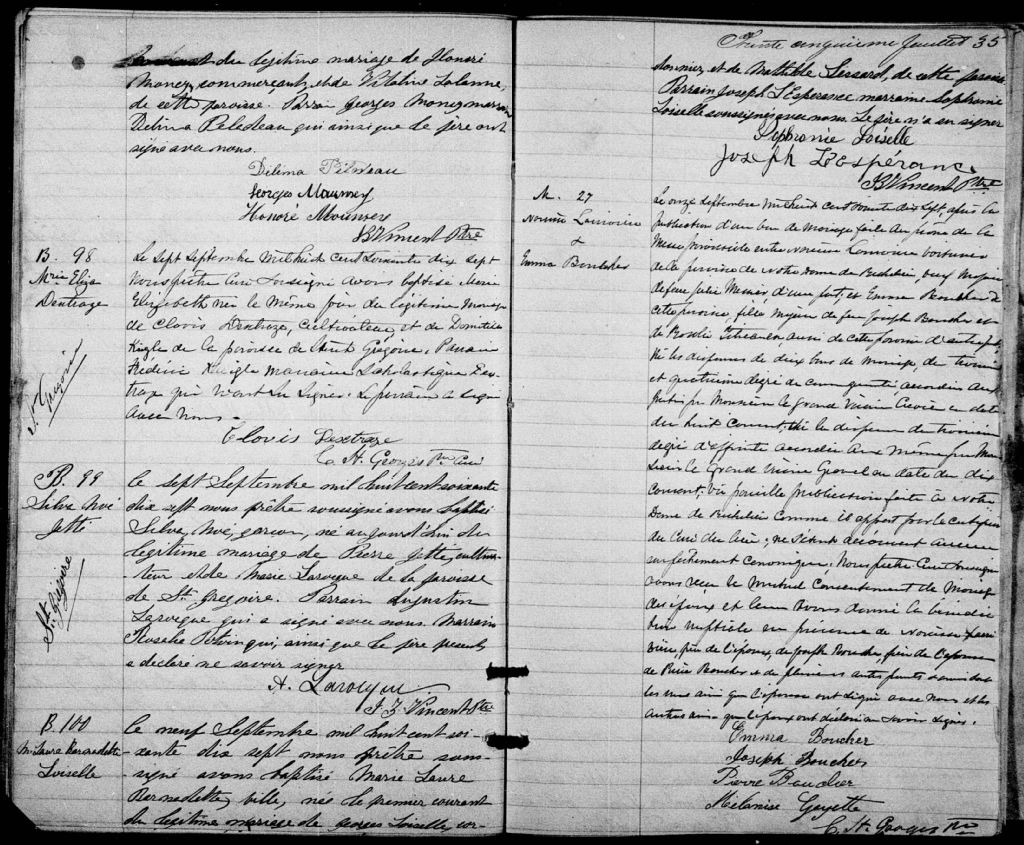 du légitime mariage de Honoré
Money, commerçant, et de Vitaline Lalanne,
de cette paroisse. Parrain Georges Money marraine
Delima Peledeau qui ainsi que le père ont
signé avec nous.
Delima Piledeau
Georges Maunney
Honoré Mounney
Vincent Ptre
B. 98
Mrie Eliza
Dextraze
St. Grégoire
Le Sept Septembre Mil huit Cent Soixante dix sept
Nous prêtre Curé Soussigné avons baptisé Marie
Elizabeth née le même jour du légitime mariage
de Clovis Dextraze, Cultivateur, et de Domitile
Kugle de la paroisse de Saint Grégoire. Parrain
Kugle Marraine Scholastique Dex-
traze qui n'ont su Signer. Le père a Signé
avec nous.
Clovis Dextraze
C. St. Georges Ptre Curé
B. 99
Silva Noé
Jetté
St. Grégoire
Le sept Septembre mil huit cent soixante
dix sept nous prêtre soussigné avons baptisé
Silva, Noé, garçon, né aujourd'hui du
légitime mariage de Pierre Jetté, cultiva-
-teur et de Marie Larocque de la paroisse
de St. Grégoire. Parrain Augustin
Larocque qui a signé avec nous. Marraine
Rosalie Potvin qui, ainsi que le père présent
a déclaré ne savoir signer
A. Larocque
Vincent Ptre
B. 100
M. Laure Bernadette
Loiselle
Le neuf Septembre mil huit cent soi-
xante dix sept nous prêtre sous-
signé avons baptisé Marie Laure
Bernadette, fille, née le premier courant
du légitime mariage de Georges Loiselle, cor-
Trente cinquième feuillet 35
donnier, et de Mathilde Lessard, de cette paroisse
Parrain Joseph L'Esperance marraine Sophronie
Loiselle soussignés avec nous. Le père n'a su signer
Sophronie Loiselle
Joseph L'Espérance
Vincent Ptre
M. 27
Lamoureux
&
Emma Boucher
Le onze Septembre Mil huit Cent Soixante dix Sept, après la
publication d'un ban de Mariage faite au prône de la
Messe paroissiale entre Lamoureux
de la paroisse de Notre Dame de Richelieu, veuf Majeur
de feue Julie Messier, d'une part, et Emma Boucher de
cette paroisse, fille Majeure de feu Joseph Boucher et
de Rosalie aussi de cette paroisse d'autre part,
Vu les dispenses de deux bans de Mariage, de troisième
et quatrième degré de consanguinité accordées aux
parties par Monsieur le grand Vicaire en date
du huit Courant, Vu la dispense du troisième
degré d'affinité accordée aux Mêmes par Mon-
sieur le Grand Vicaire Gravel au date du dix
Courant. Vu pareille publication faite à Notre
Dame de Richelieu comme il appert par le Certificat
du Curé du lieu; ne S'étant découvert aucun
empêchement canonique, Nous prêtre Curé Soussigné
avons reçu le Mutuel Consentement de Mariage
des époux et leur avons donné la bénédic-
tion nuptiale en présence de
père de l'époux, de Joseph Boucher, frère de l'épouse
de Pierre Boucher et de plusieurs autres parents
les uns ainsi que l'épouse ont signé avec nous et les
autres ainsi que l'époux ont déclaré ne Savoir Signer.
Emma Boucher
Joseph Boucher
Pierre Boucher
Mélanise Goyette
C. St. Georges Ptre